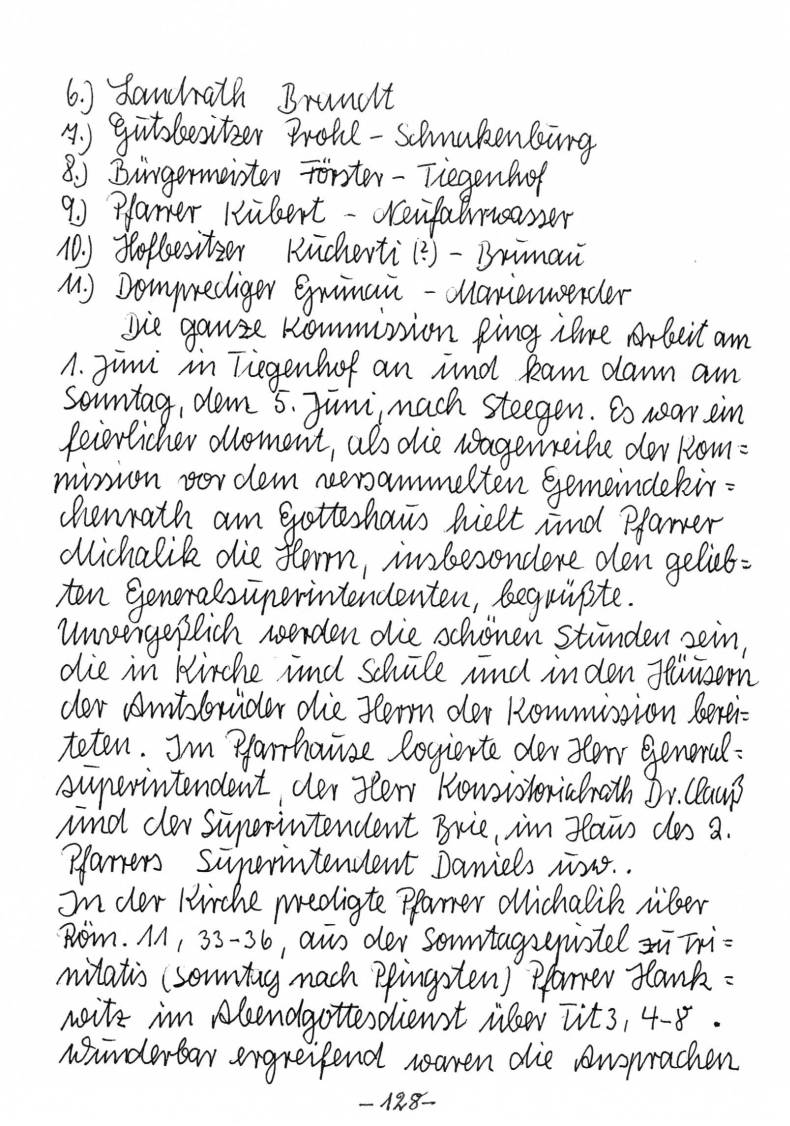 6.) Landrath Brandt
7.) Gutsbesitzer Prohl – Schnakenburg
8.) Bürgermeister Förster – Tiegenhof
9.) Pfarrer Kubert – Neufahrwasser
10.) Hofbesitzer Kucherti (?) – Brunau
11.) Domprediger Grunau – Marienwerder
Die ganze Kommission fing ihre Arbeit am
1. Juni in Tiegenhof an und kam dann am
Sonntag, dem 5. Juni, nach Steegen. Es war ein
feierlicher Moment, als die Wagenreihe der Kom=
mission vor dem versammelten Gemeindekir=
chenrath am Gotteshaus hielt und Pfarrer
Michalik die Herrn, insbesondere den gelieb=
ten Generalsuperintendenten, begrüßte.
Unvergeßlich werden die schönen Stunden sein,
die in Kirche und Schule und in den Häusern
der Amtsbrüder die Herrn der Kommission berei=
teten. Im Pfarrhause logierte der Herr General=
superintendent, der Herr Konsistorialrath Dr. Clauß
und der Superintendent Brie, im Haus des 2.
Pfarrers Superintendent Daniels usw..
In der Kirche predigte Pfarrer Michalik über
Röm. 11, 33-36, aus der Sonntagsepistel zu Tri=
nitatis (Sonntag nach Pfingsten) Pfarrer Hank=
witz im Abendgottesdienst über Tit 3, 4-8.
Wunderbar ergreifend waren die Ansprachen
-128-